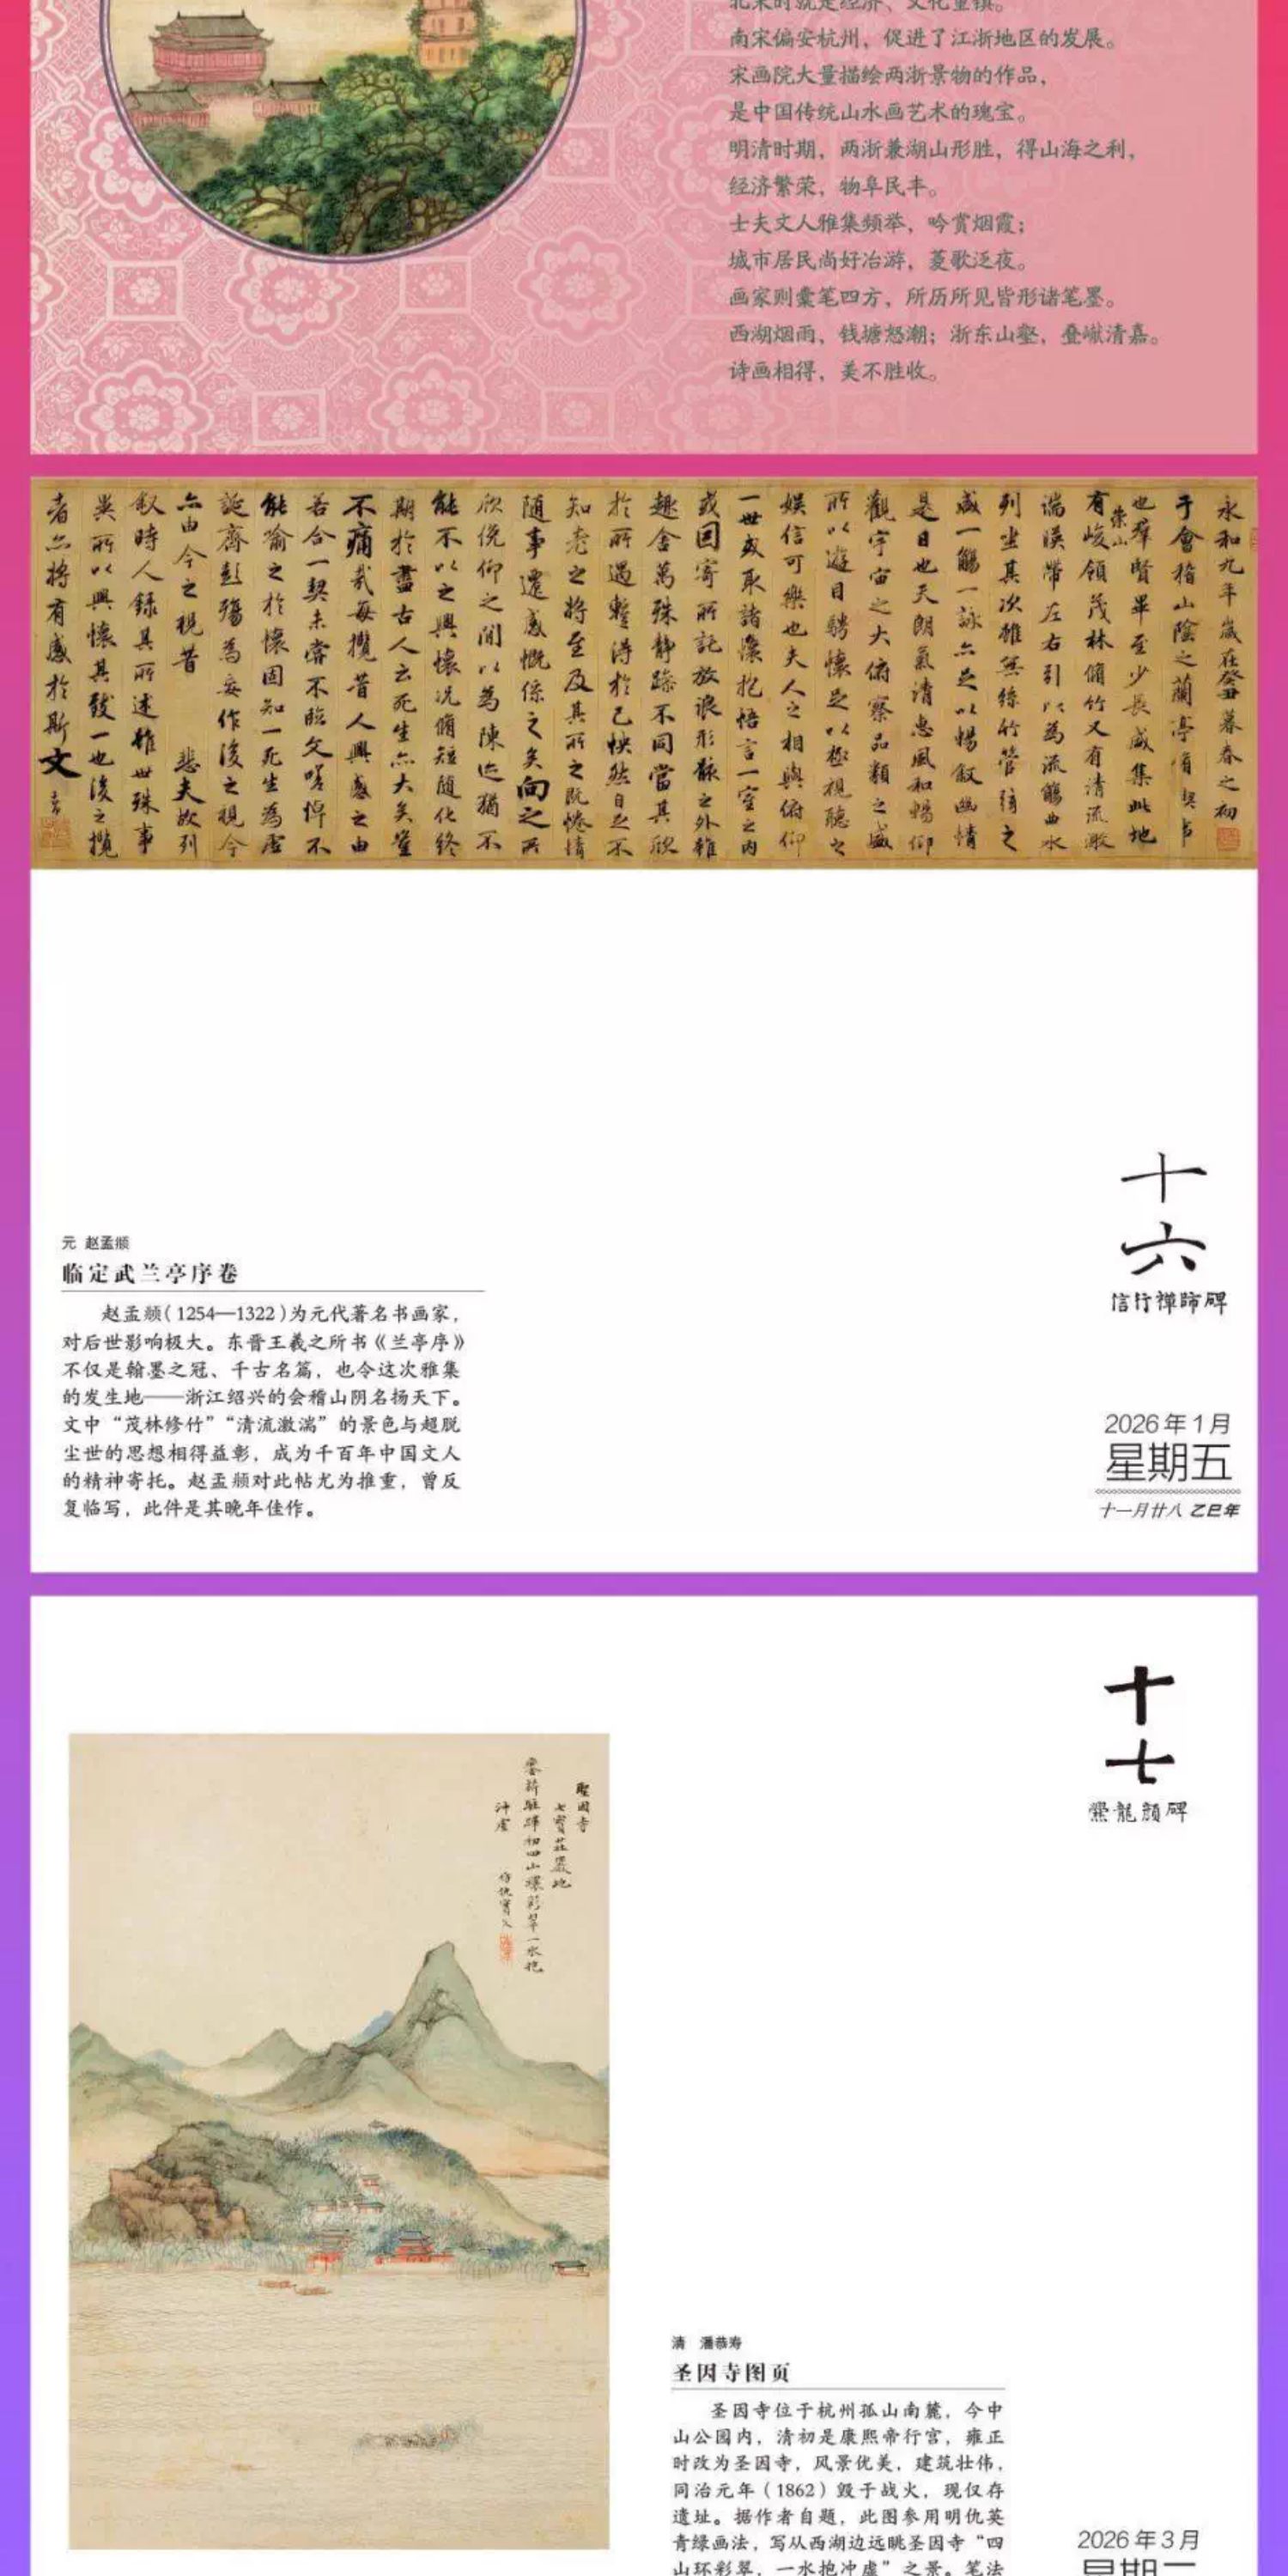 北宋时就是经济、文化重镇。
南宋偏安杭州，促进了江浙地区的发展。
宋画院大量描绘两浙景物的作品，
是中国传统山水画艺术的瑰宝。
明清时期，两浙兼湖山形胜，得山海之利，
经济繁荣，物阜民丰。
士夫文人雅集频举，吟赏烟霞；
城市居民尚好冶游，菱歌泛夜。
画家则橐笔四方，所历所见皆形诸笔墨。
西湖烟雨，钱塘怒潮；浙东山壑，叠巘清嘉。
诗画相得，美不胜收。
永和九年歲在癸丑暮春之初
于會稽山陰之蘭亭脩禊事
也羣賢畢至少長咸集此地
有崇山峻領茂林脩竹又有清流激
湍暎帶左右引以為流觴曲水
列坐其次雖無絲竹管弦之
盛一觴一詠亦足以暢叙幽情
是日也天朗氣清惠風和暢仰
觀宇宙之大俯察品類之盛
所以遊目騁懷足以極視聽之
娛信可樂也夫人之相與俯仰
一世或取諸懷抱悟言一室之內
或因寄所託放浪形骸之外雖
趣舍萬殊靜躁不同當其欣
於所遇暫得於己怏然自足不
知老之將至及其所之既惓情
随事遷感慨係之矣向之所
欣俛仰之間以為陳迹猶不
能不以之興懷況脩短随化終
期於盡古人云死生亦大矣豈
不痛哉每攬昔人興感之由
若合一契未嘗不臨文嗟悼不
能喻之於懷固知一死生為虛
誕齊彭殤為妄作後之視今
亦由今之視昔 悲夫故列
叙時人錄其所述雖世殊事
異所以興懷其致一也後之攬
者亦將有感於斯文
十
六
信行禅師碑
元 赵孟頫
临定武兰亭序卷
赵孟頫（1254—1322）为元代著名书画家，
对后世影响极大。东晋王羲之所书《兰亭序》
不仅是翰墨之冠、千古名篇，也令这次雅集
的发生地——浙江绍兴的会稽山阴名扬天下。
文中“茂林修竹”“清流激湍”的景色与超脱
尘世的思想相得益彰，成为千百年中国文人
的精神寄托。赵孟頫对此帖尤为推重，曾反
复临写，此件是其晚年佳作。
2026年1月
星期五
十一月廿八 乙巳年
十
七
爨龍顔碑
聖因寺
七寶莊嚴地
鑾輿駐蹕初四山環彩翠一水抱
沖虛
清 潘恭寿
圣因寺图页
圣因寺位于杭州孤山南麓，今中
山公园内，清初是康熙帝行宫，雍正
时改为圣因寺，风景优美，建筑壮伟，
同治元年（1862）毁于战火，现仅存
遗址。据作者自题，此图参用明仇英
青绿画法，写从西湖边远眺圣因寺“四
山环彩翠，一水抱冲虚”之景。笔法
2026年3月
星期二